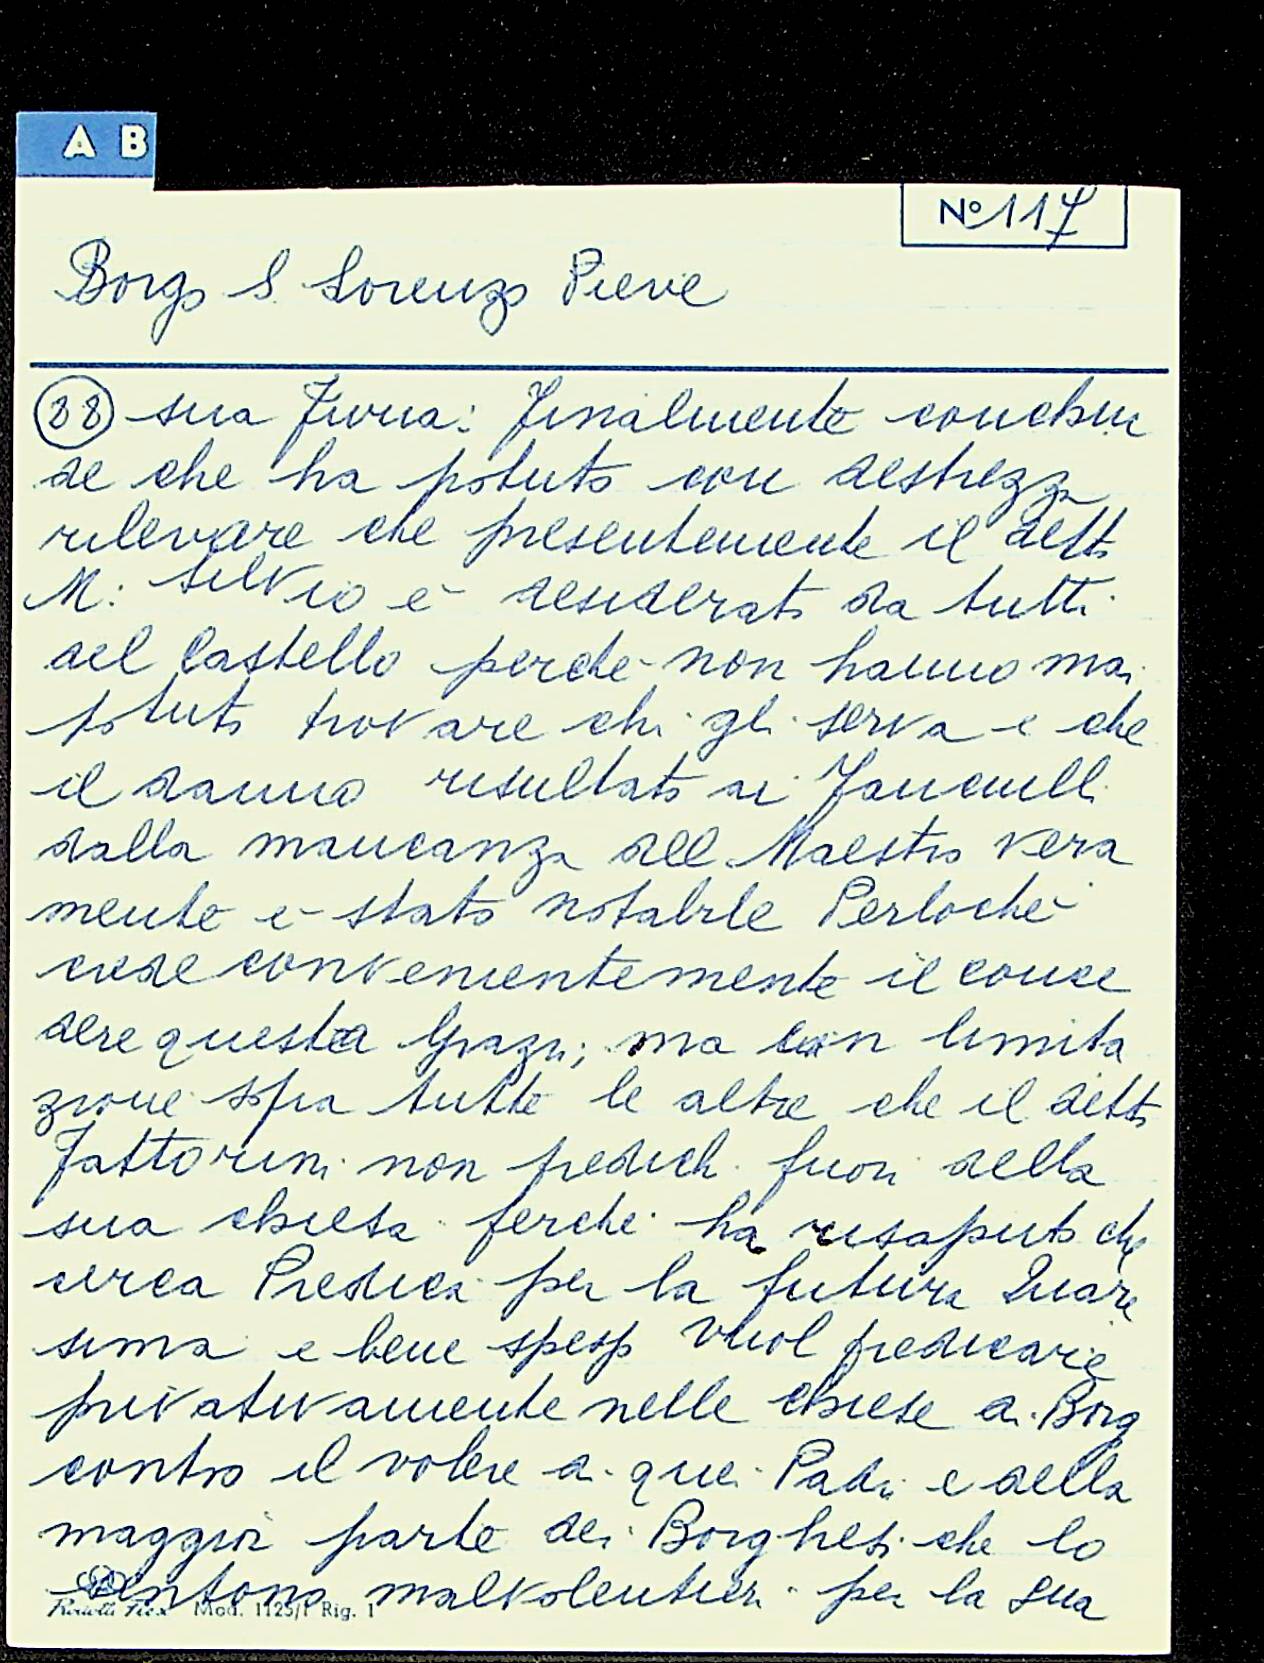 A B
No 117
Borgo S. Lorenzo Pieve
88 sua Furia: Finalmente conchiu
de che ha potuto con destrezza
rilevare che presentemente il detto
M: Silvio è desiderato da tutti
del Castello perche non hanno mai
potuto trovare chi gli serva e che
il danno resultato ai Fanciulli
dalla mancanza del Maestro vera
mente è stato notabile Perloché
crede convenientemente il conce
dere questa Grazia; ma con limita
zione sopra tutte le altre che il detto
Fattorini non predichi fuori della
sua chiesa perche ha risaputo che
cerca Predica per la futura Quare
sima e bene spesso vuol predicare
privativamente nelle chiese di Borgo
contro il volere di quei Padri e della
maggior parte dei Borghesi che lo
sentono malvolentieri per la sua
Mod. 1125/1 Rig. 1